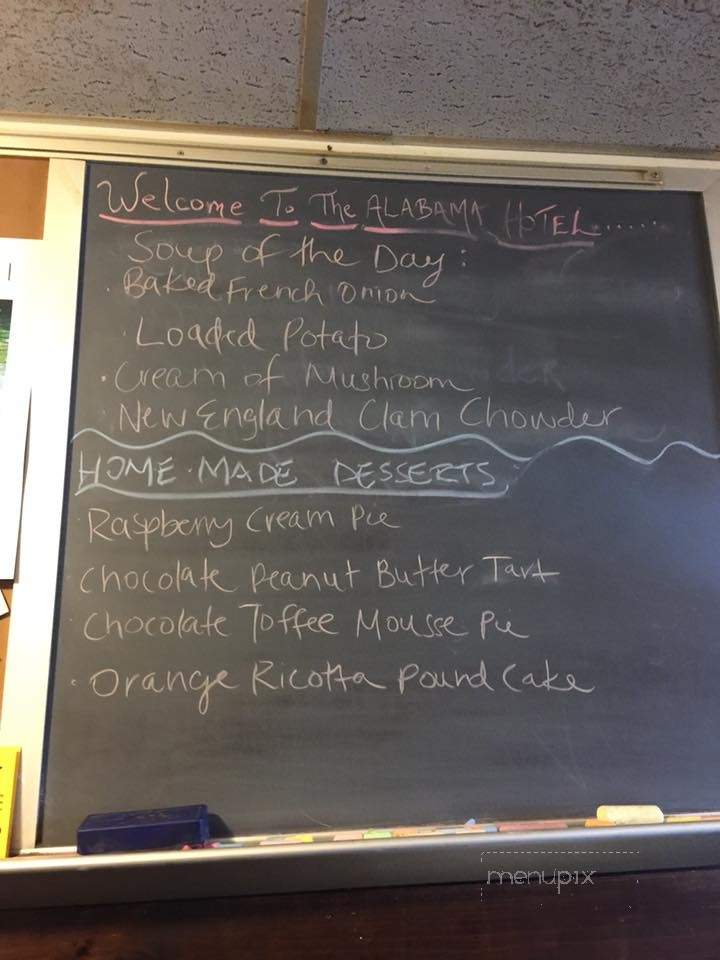 Welcome To The ALABAMA HOTEL......
Soup of the Day:
· Baked French Onion
· Loaded Potato
· Cream of Mushroom
New England Clam Chowder
HOME·MADE DESSERTS
Raspberry Cream Pie
Chocolate Peanut Butter Tart
Chocolate Toffee Mousse Pie
· Orange Ricotta Pound Cake
menupix